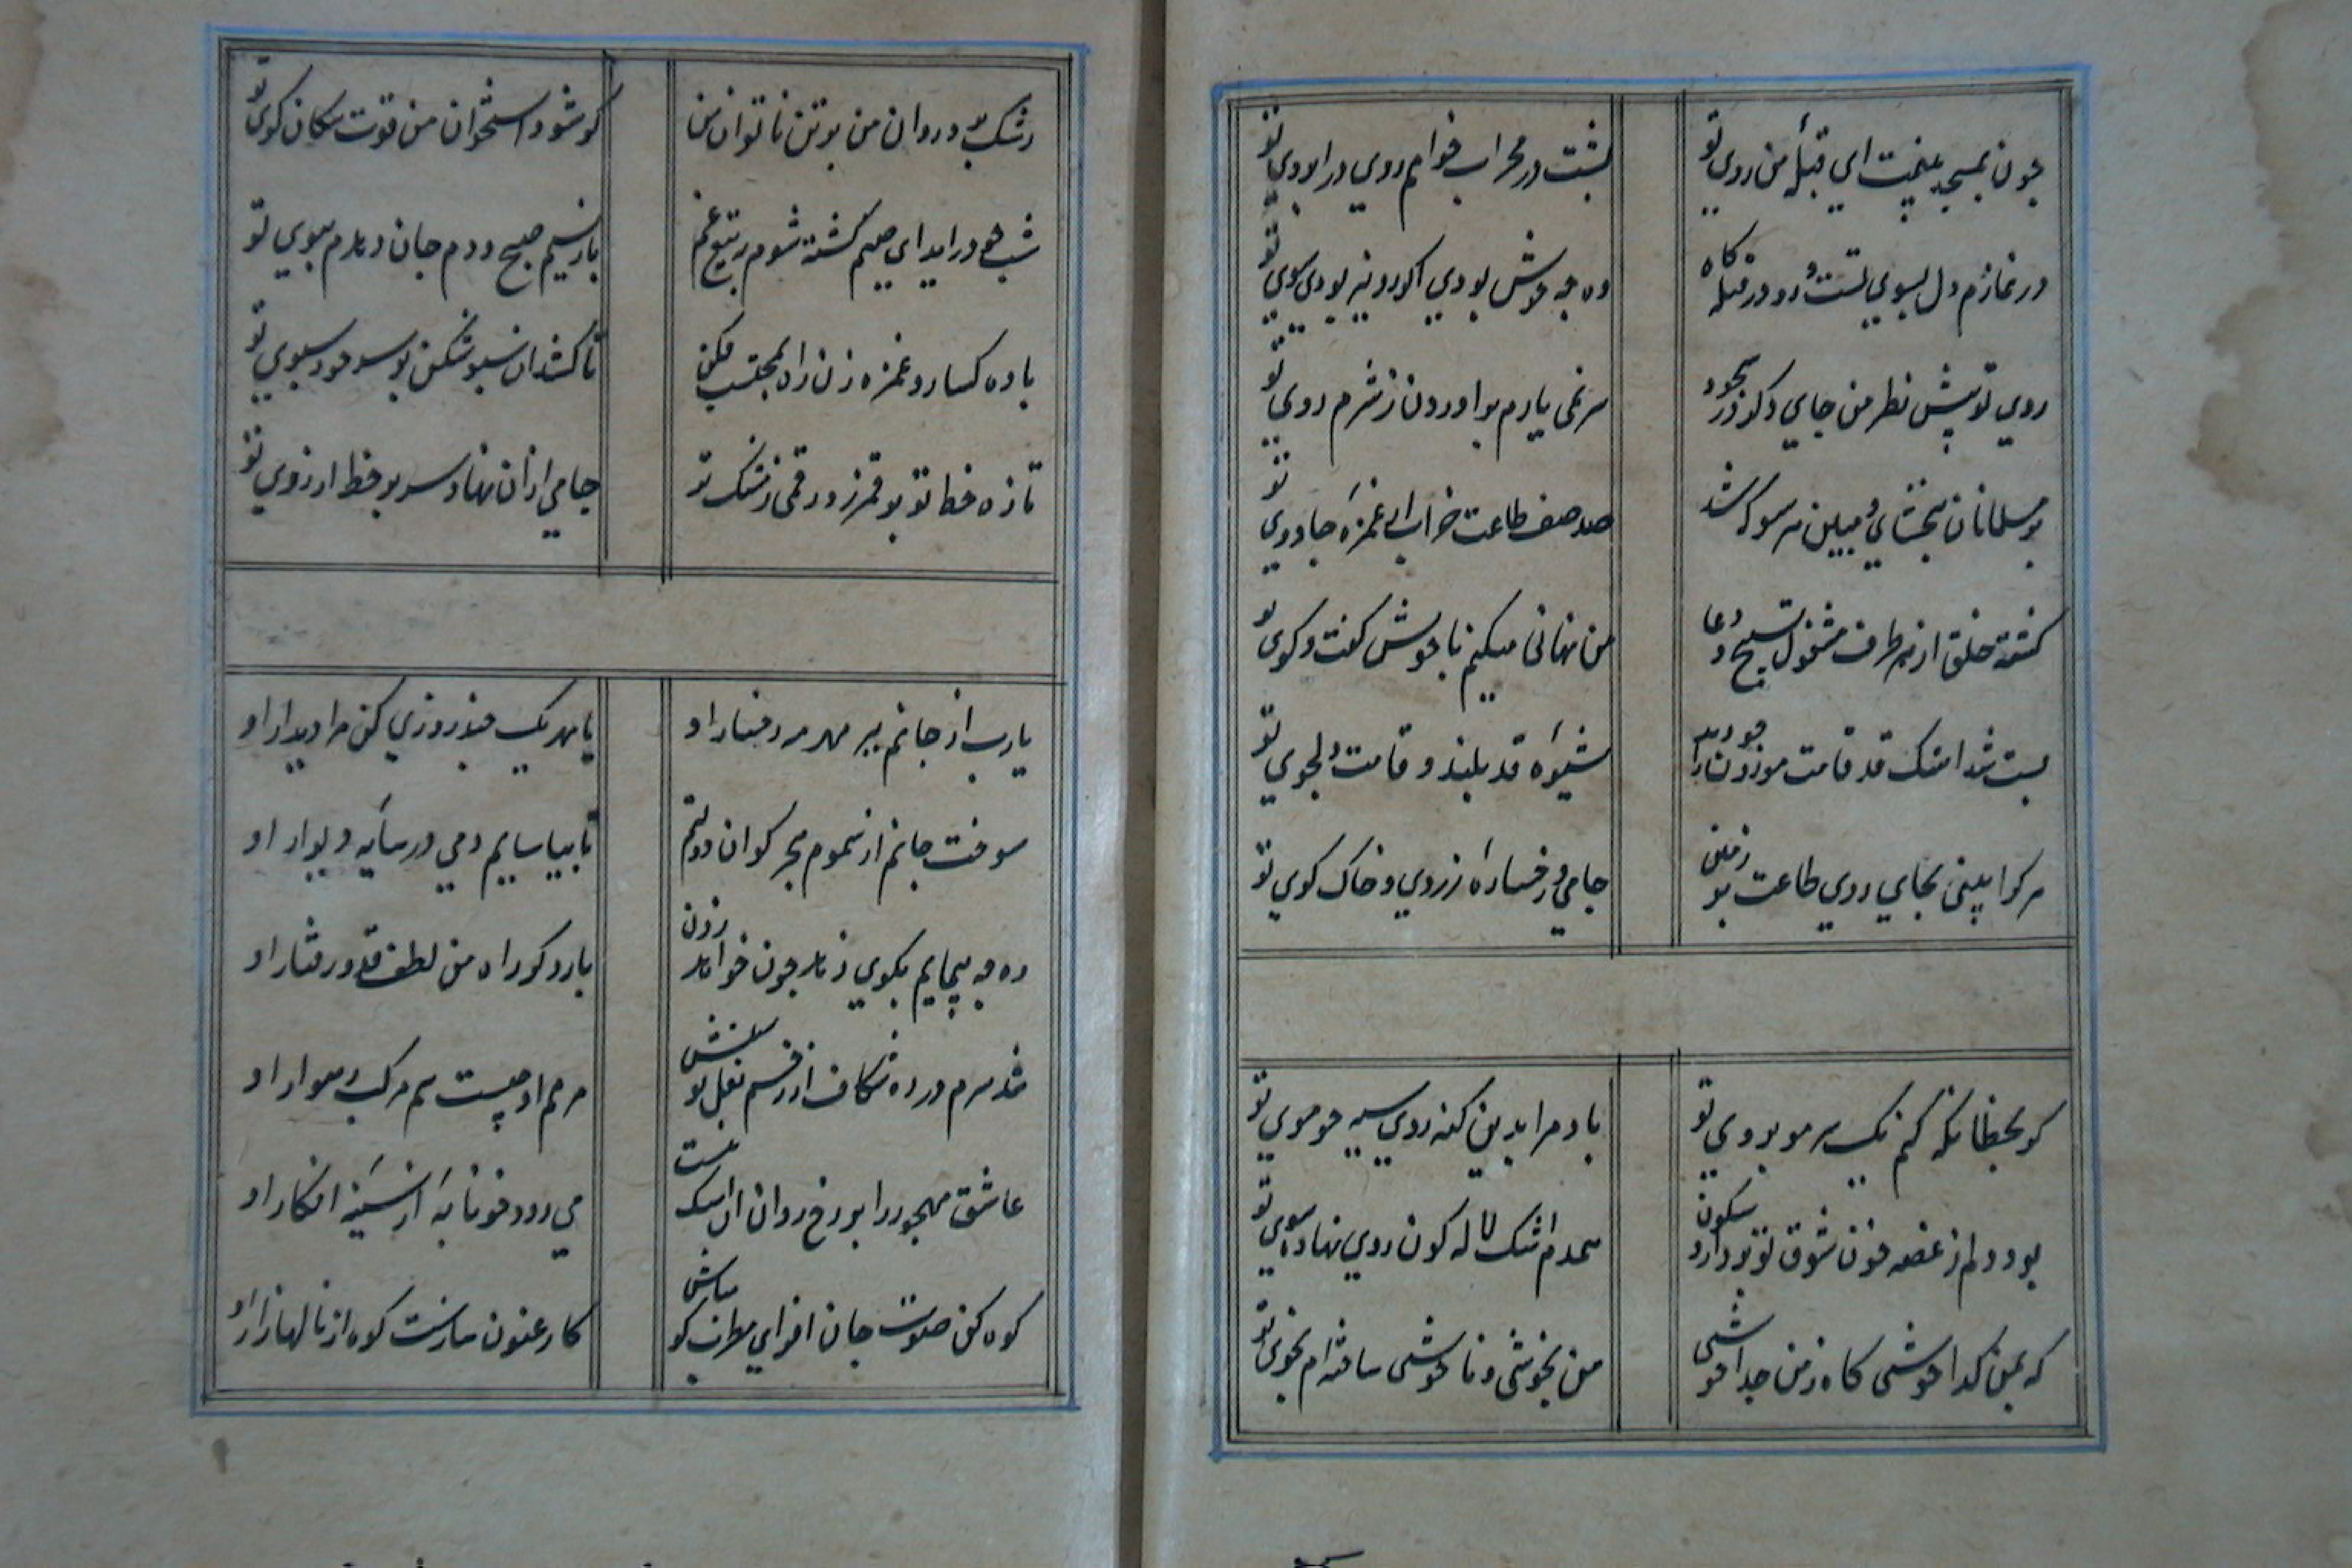 چون بمسجد بینمت ای قبلهٔ من روی تو
پشت در محراب خواهم روی در ابروی تو
در نمازم دل بسوی تست و رو در قبله گاه
وه چه خوش بودی اکر رو نیز بودی سوی تو
روی تو پیش نظر من جای دکر در سجود
سر نمی یارم بر اوردن ز شرم روی تو
بر مسلمانان ببخشای و مبین هر سو که شد
صد صف طاعت خراب از غمزهٔ جادوی تو
کشته خلق از هر طرف مشغول تسبیح و دعا
من نهانی میکنم با خویش کفت و کوی تو
پست شد اشک قد قامت موذن را چو دید
شیوهٔ قد بلند و قامت دلجوی تو
هر کرا بینی بجای روی طاعت بر زمین
جامی و رخسارهٔ زردی و خاک کوی تو
کر بخطا نکه کنم یک سر مو بروی تو
باد مرا بدین کنه روی سیه چو موی تو
بود دلم ز غصه خون شوق تو برد ازو سکون
همدم اشک لاله کون روی نهاده سوی تو
که بمن کدا خوشی کاه ز من جدا خوشی
من بخوشی و ناخوشی ساخته ام بخوی تو
رشک برد روان من بر تن ناتوان من
کو شود استخوان من قوت سکان کوی تو
شب چو در اید ای صنم کشته شوم ز تیغ غم
باز نسیم صبح دم جان دهدم ببوی تو
باده کسار و غمزه زن از ره محتسب فکن
تا کشد ان سبو شکن بر سر خود سبوی تو
تازه خط تو بر قمر زد رقمی ز مشک تر
جامی ازان نهاد سر بر خط ارزوی تو
یارب از جانم ببر مهر مه رخسار او
یا بهر یک چند روزی کن مرا دیدار او
سوخت جانم از سموم هجر کو ان دولتم
تا بیاسایم دمی در سایه دیوار او
وه چه پیمایم بکوی زهد چون خواهد زدن
باز دکر راه من لطف قد و رفتار او
شد سرم در ره شکاف از زخم نعل توسنش
مرهم او چیست سم مرکب رهوار او
عاشق مهجور را بر رخ روان ان اشک نیست
می رود خونابه از سینهٔ افکار او
کوه کن صوت جان افزای مطرب کو مباش
کارغنون ساز است کوه از نالهای زار او